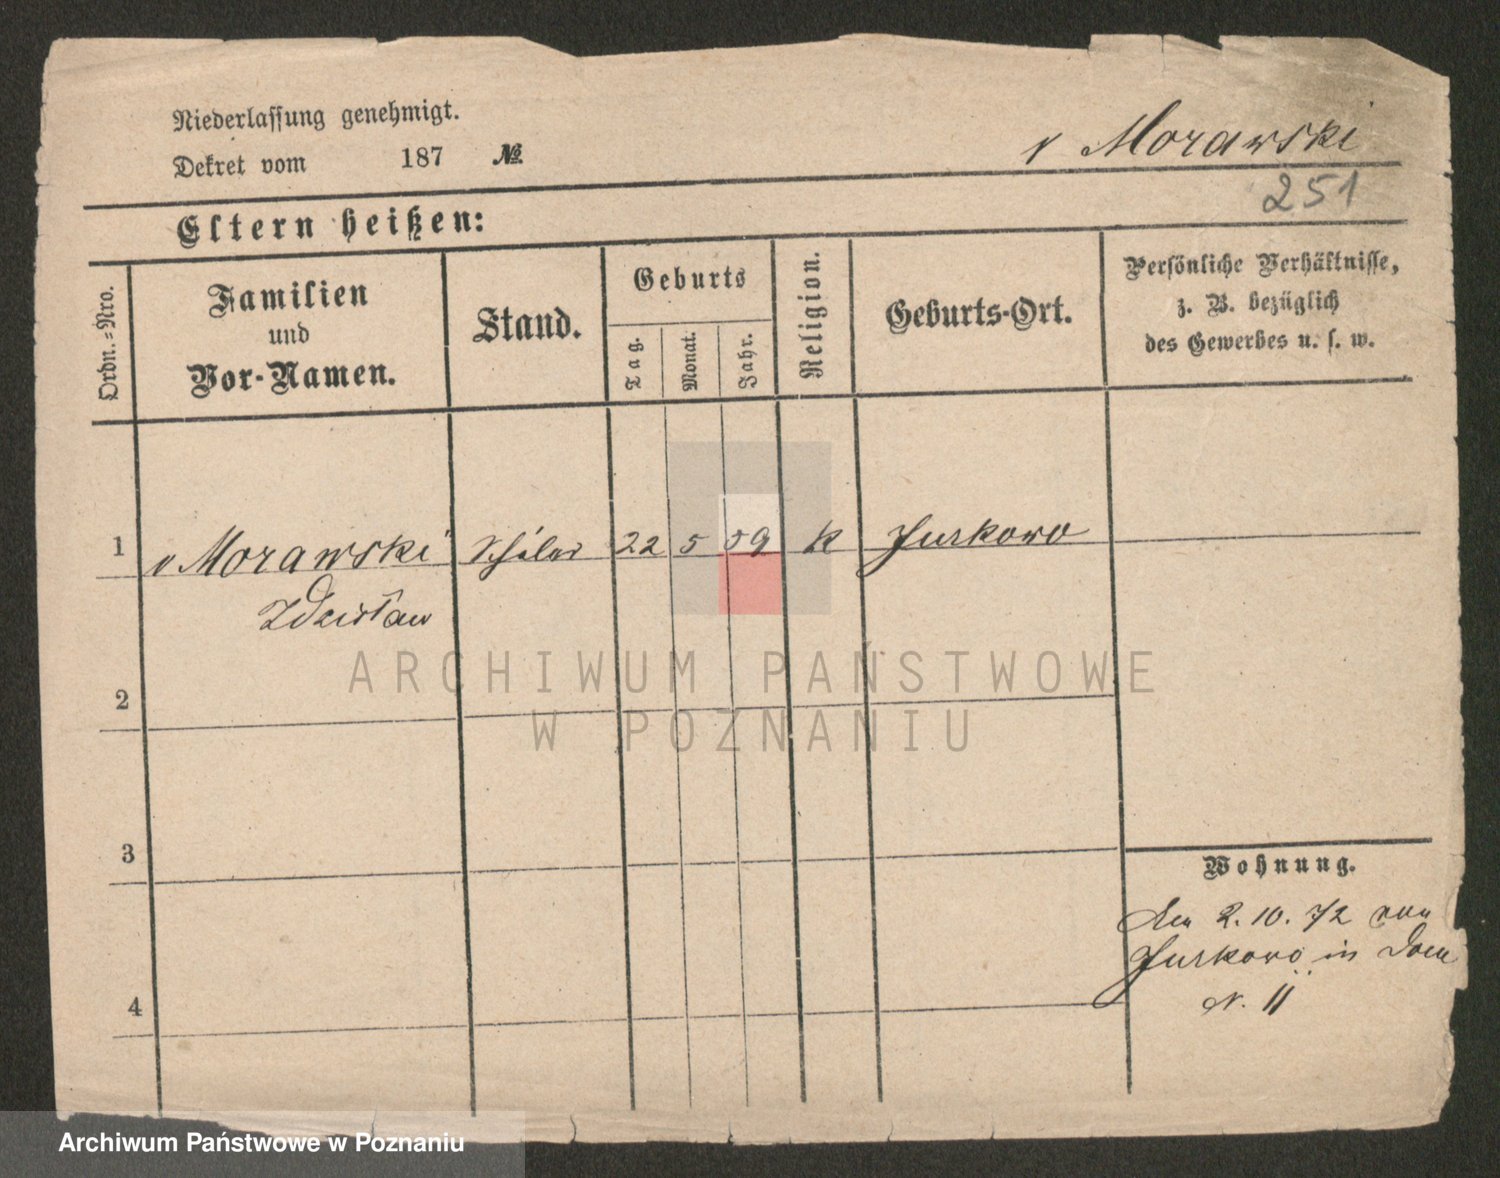 Niederlassung genehmigt.
Dekret vom 187 №
v Morawski
251
Eltern heißen:
Ordn.-Nro.
Familien
und
Vor-Namen.
Stand.
Geburts
Tag.
Monat.
Jahr.
Religion.
Geburts-Ort.
Persönliche Verhältnisse,
z. B. bezüglich
des Gewerbes u. s. w.
1 v Morawski Schüler 22 5 59 k Jurkowo
Zdzisław
ARCHIWUM PAŃSTWOWE
W POZNANIU
2
3
Wohnung.
Den 2.10.72 von
Jurkowo in Dom
N. 11
4
Archiwum Państwowe w Poznaniu